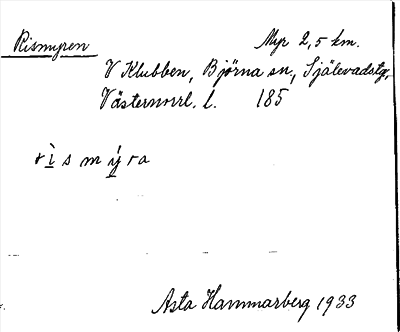 Rismyren Myr 2,5 km.
V Klubben, Björna sn, Själevadstg,
Västernorrl. l. 185
r ì s m ý r a
Asta Hammarberg 1933